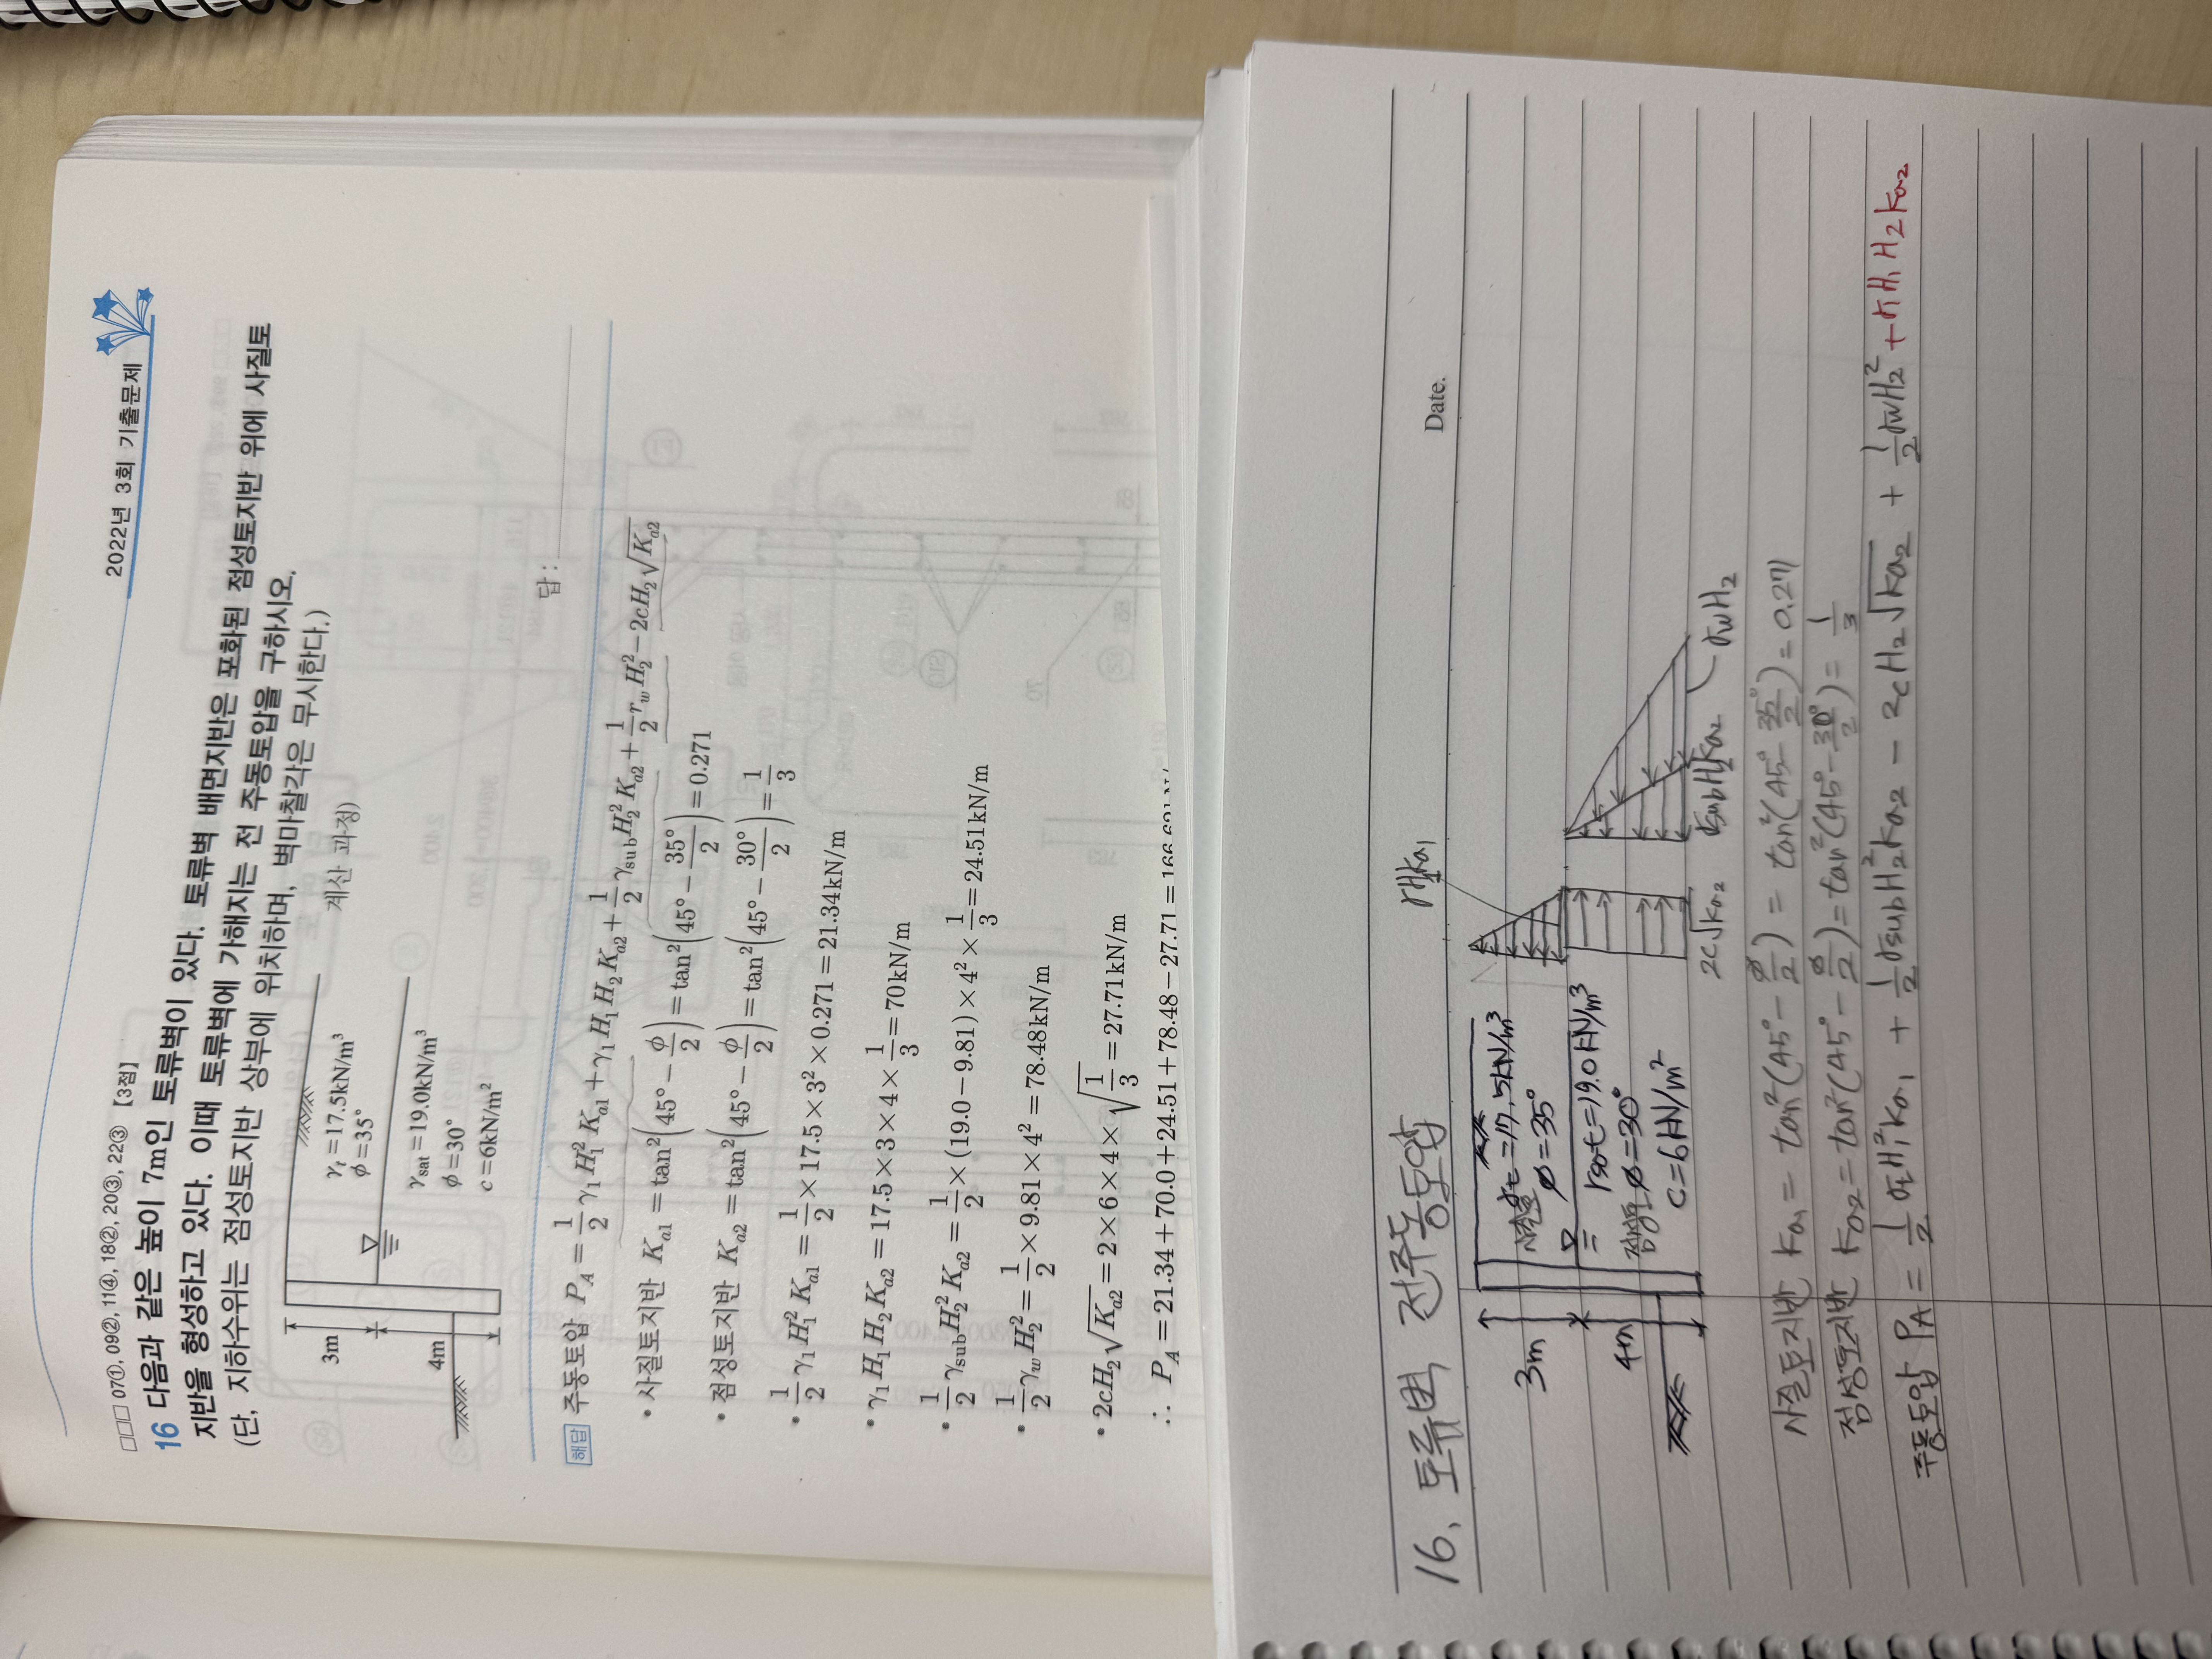 2022년 3회 기출문제
□□□ 07①, 09②, 11④, 18②, 20③, 22③ 【3점】
16 다음과 같은 높이 7m인 토류벽이 있다. 토류벽 배면지반은 포화된 점성토지반 위에 사질토
지반을 형성하고 있다. 이때 토류벽에 가해지는 전 주동토압을 구하시오.
(단, 지하수위는 점성토지반 상부에 위치하며, 벽마찰각은 무시한다.)
계산 과정)
3m
γt = 17.5kN/m³
φ = 35°
4m
γsat = 19.0kN/m³
φ = 30°
c = 6kN/m²
답 :
해답 주동토압 P_A = 1/2 γ₁H₁²K_a1 + γ₁H₁H₂K_a2 + 1/2 γ_sub H₂²K_a2 + 1/2 r_w H₂² − 2cH₂√K_a2
• 사질토지반 K_a1 = tan²(45° − φ/2) = tan²(45° − 35°/2) = 0.271
• 점성토지반 K_a2 = tan²(45° − φ/2) = tan²(45° − 30°/2) = 1/3
• 1/2 γ₁H₁²K_a1 = 1/2 × 17.5 × 3² × 0.271 = 21.34kN/m
• γ₁H₁H₂K_a2 = 17.5 × 3 × 4 × 1/3 = 70kN/m
• 1/2 γ_sub H₂²K_a2 = 1/2 × (19.0 − 9.81) × 4² × 1/3 = 24.51kN/m
• 1/2 γ_w H₂² = 1/2 × 9.81 × 4² = 78.48kN/m
• 2cH₂√K_a2 = 2 × 6 × 4 × √(1/3) = 27.71kN/m
∴ P_A = 21.34 + 70.0 + 24.51 + 78.48 − 27.71 = 166.62kN/
Date.
16. 토류벽 전주동토압
3m
사질토 γt = 17.5kN/m³
φ = 35°
4m
γsat = 19.0kN/m³
점성토 φ = 30°
c = 6kN/m²
2c√Ka2
γsubH₂Ka2
γwH₂
사질토지반 Ka1 = tan²(45° − φ/2) = tan²(45° − 35°/2) = 0.271
점성토지반 Ka2 = tan²(45° − φ/2) = tan²(45° − 30°/2) = 1/3
주동토압 PA = 1/2 γtH₁²Ka1 + 1/2 γsubH₂²Ka2 − 2cH₂√Ka2 + 1/2 γwH₂² + γ₁H₁H₂Ka2